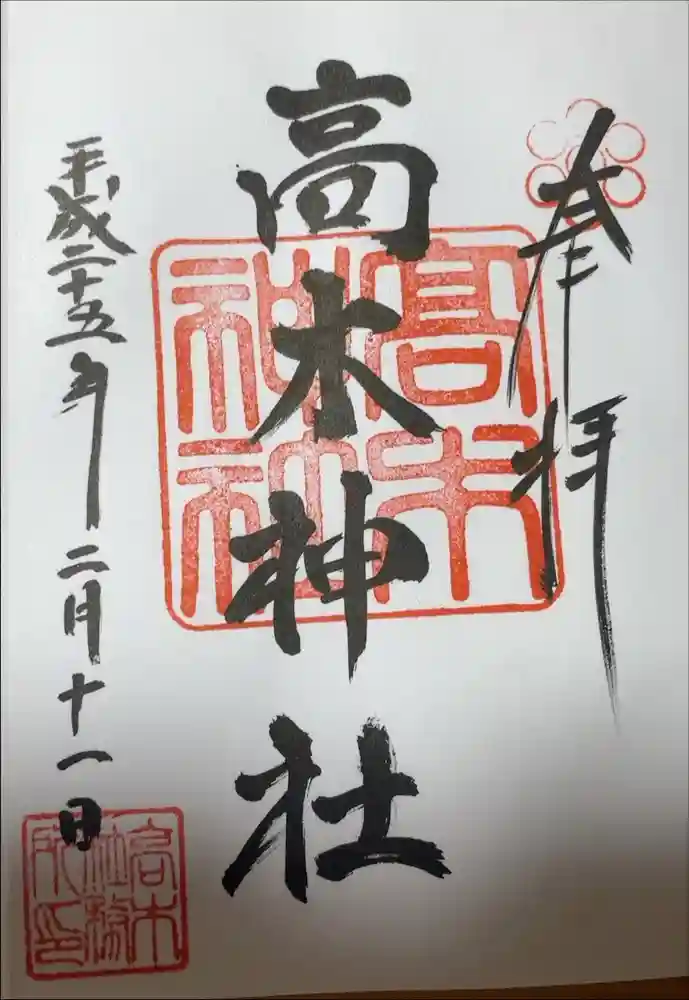 奉拝
高木神社
平成二十五年二月十一日
高木神社
高木社務所印